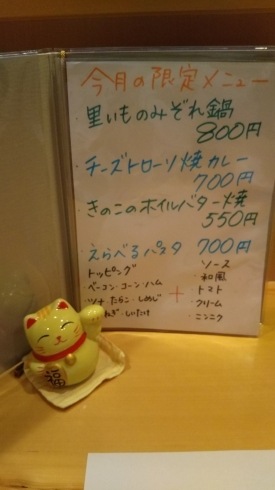 今月の限定メニュー
里いものみぞれ鍋
800円
・チーズトローリ焼カレー
700円
・きのこのホイルバター焼
550円
・えらべるパスタ 700円
トッピング
ソース
・ベーコン・コーン・ハム
・和風
・ツナ・たらこ・しめじ
+
・トマト
・クリーム
ねぎ・しいたけ
・ニンニク
福